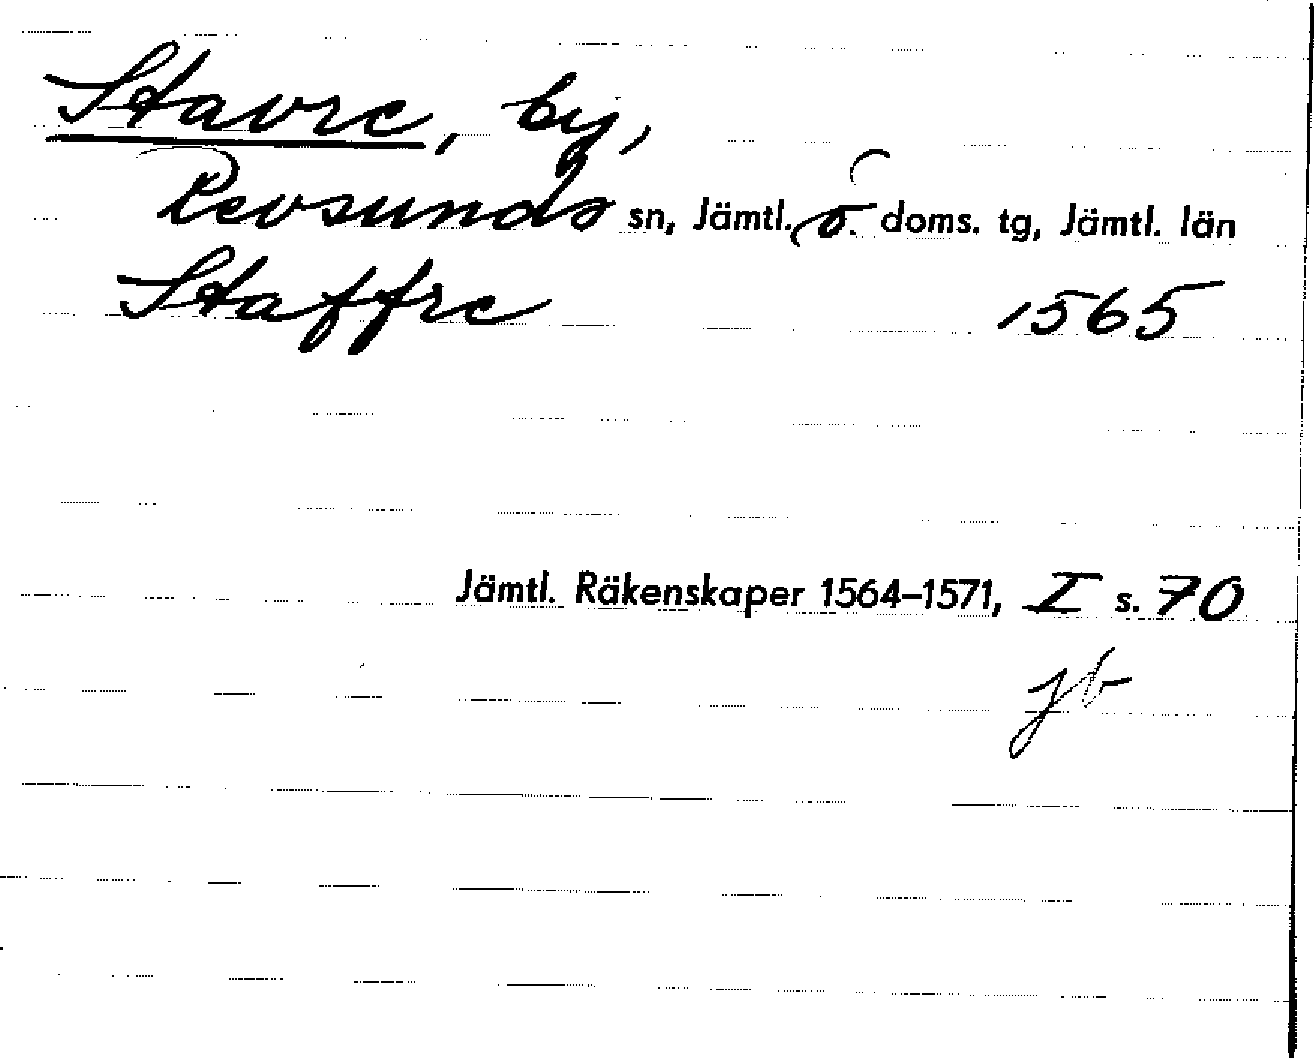 Stavre, by,
Revsunds sn, Jämtl. ö. doms. tg, Jämtl. län
Staffre 1565
Jämtl. Räkenskaper 1564–1571, I s. 70